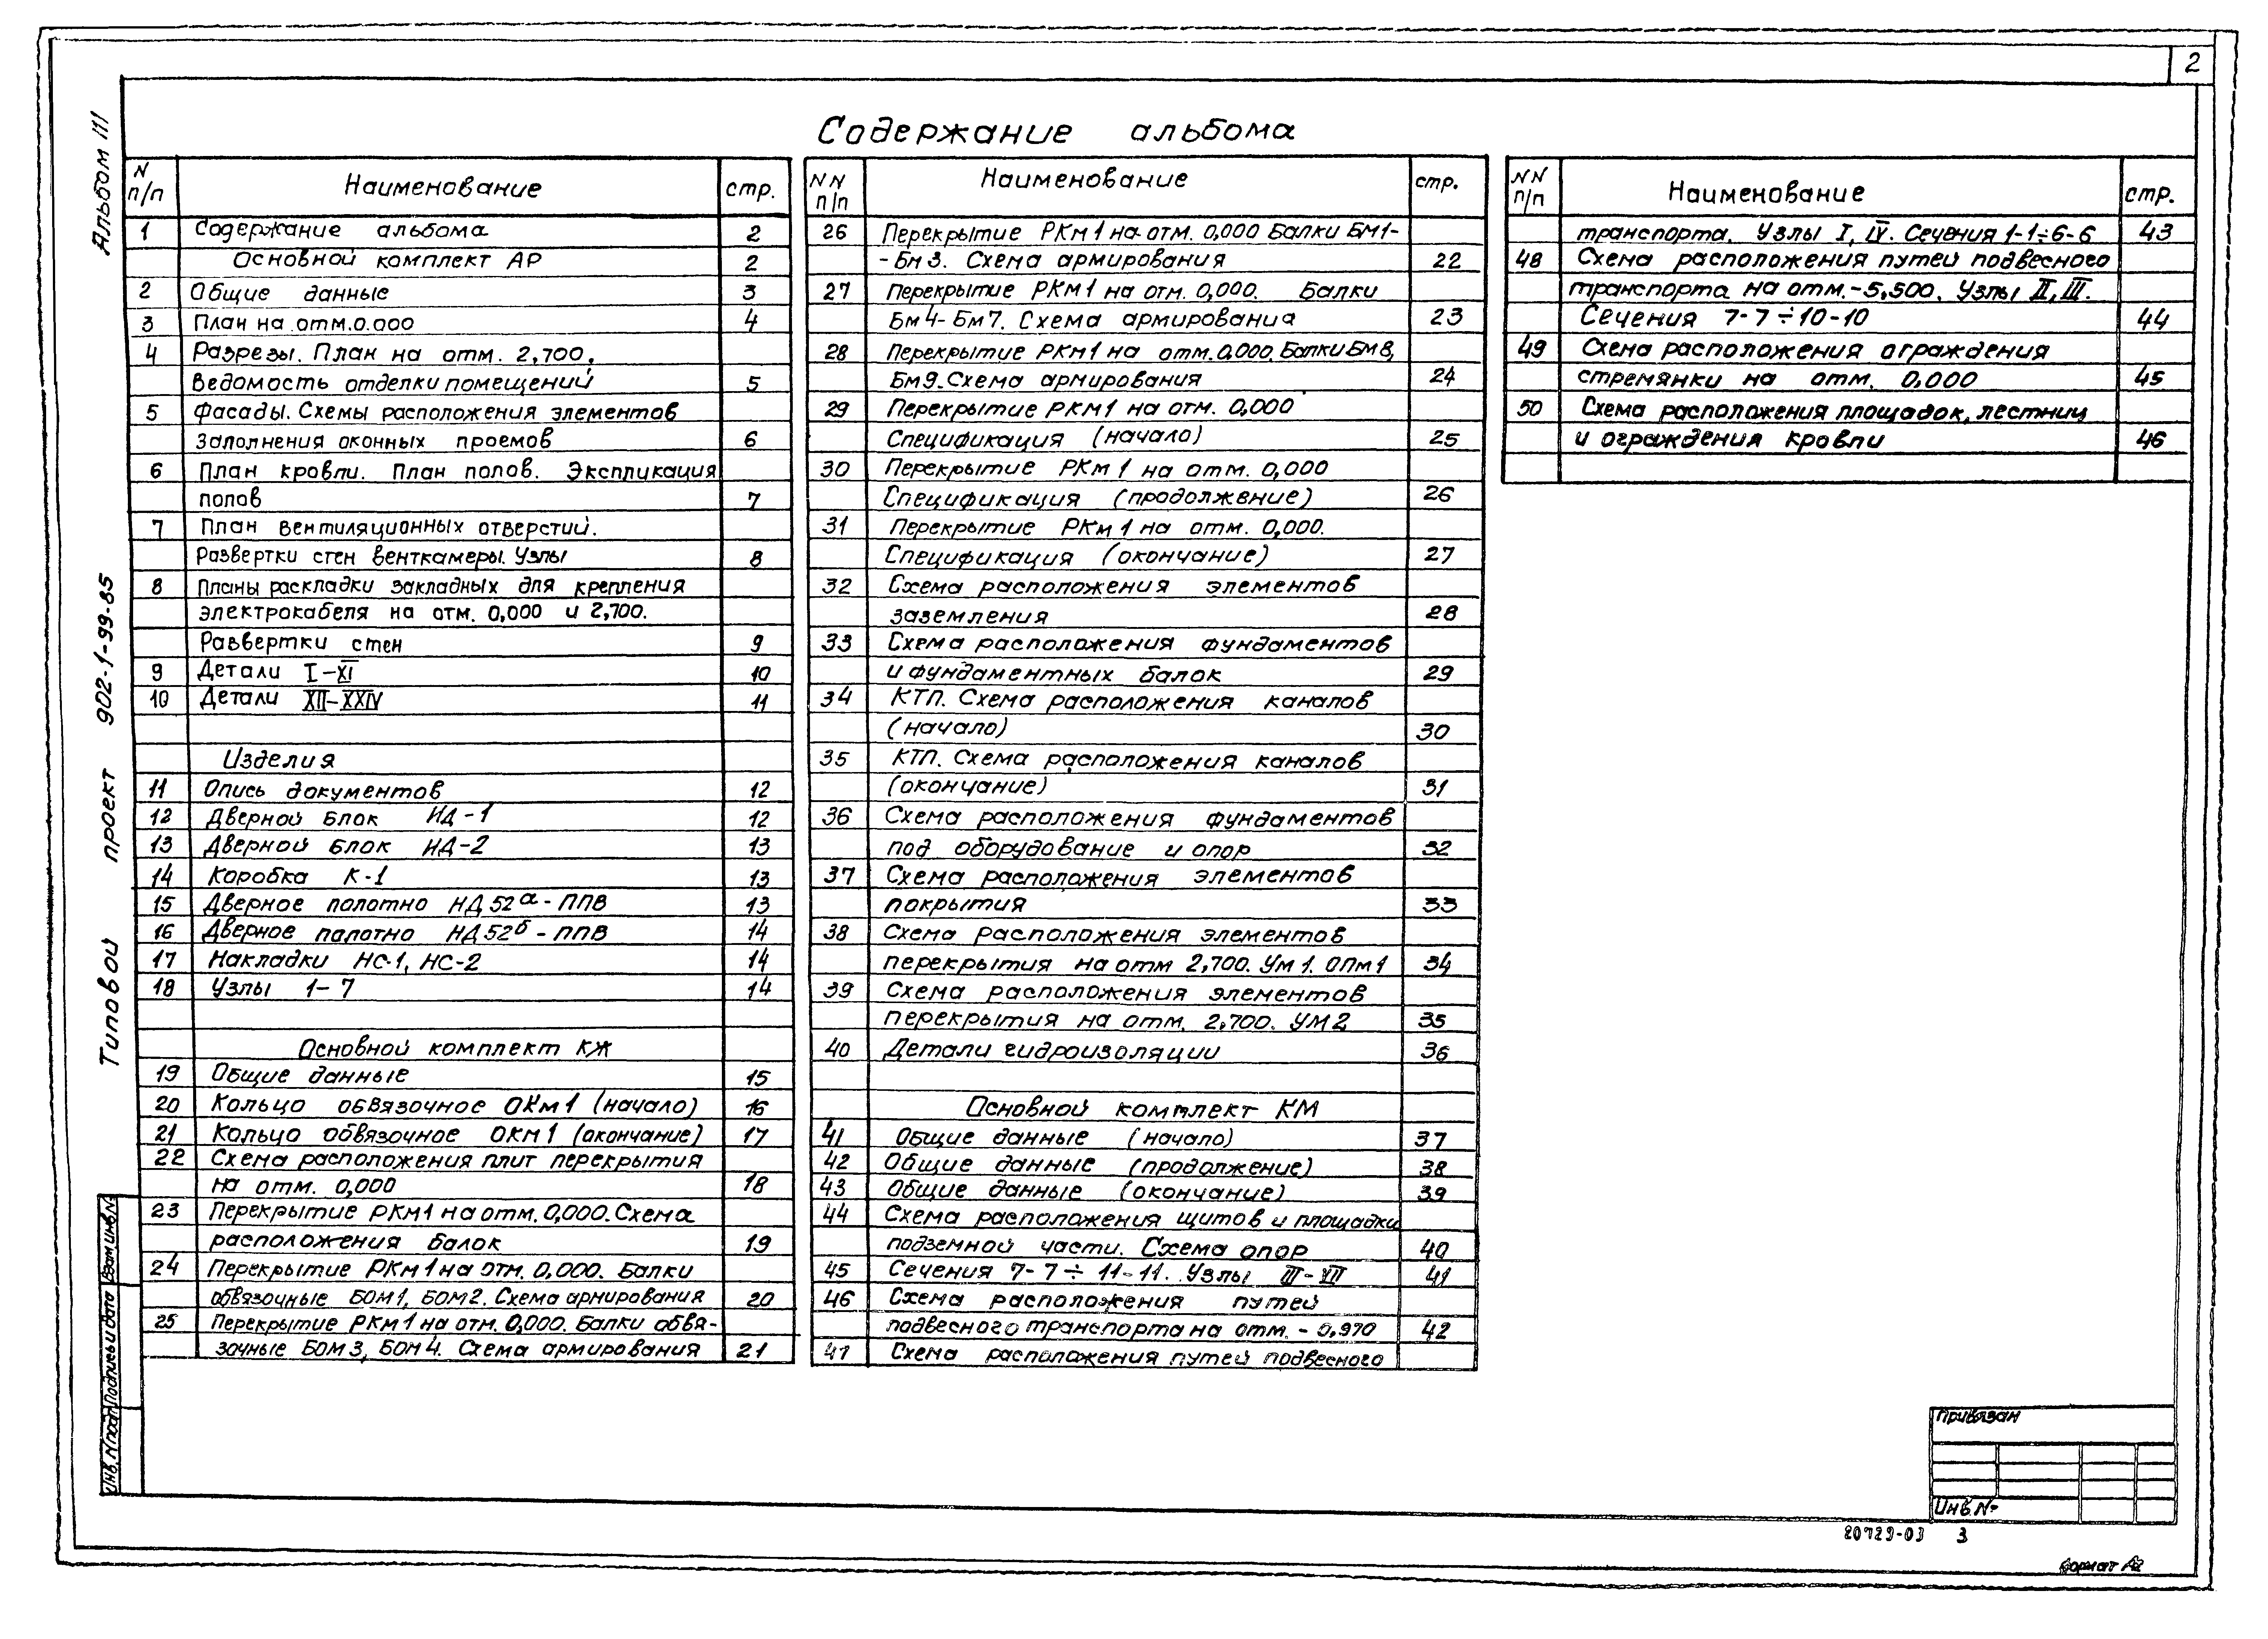 2
Альбом III
Содержание альбома
N п/п Наименование стр.
1 Содержание альбома 2
Основной комплект АР 2
2 Общие данные 3
3 План на отм.0.000 4
4 Разрезы. План на отм. 2,700,
Ведомость отделки помещений 5
5 Фасады. Схемы расположения элементов
заполнения оконных проемов 6
6 План кровли. План полов. Экспликация
полов 7
7 План вентиляционных отверстий.
Развертки стен венткамеры. Узлы 8
8 Планы раскладки закладных для крепления
электрокабеля на отм. 0,000 и 2,700.
Развертки стен 9
9 Детали I-XI 10
10 Детали XII-XXIV 11
Изделия
11 Опись документов 12
12 Дверной блок НД-1 12
13 Дверной блок НД-2 13
14 Коробка К-1 13
15 Дверное полотно НД52а-ППВ 13
16 Дверное палотно НД52б-ППВ 14
17 Накладки НС-1, НС-2 14
18 Узлы 1-7 14
Основной комплект КЖ
19 Общие данные 15
20 Кольцо обвязочное ОКм1 (начало) 16
21 Кольцо обвязочное ОКМ1 (окончание) 17
22 Схема расположения плит перекрытия
на отм. 0,000 18
23 Перекрытие РКм1 на отм. 0,000. Схема
расположения балок 19
24 Перекрытие РКм1 на отм. 0,000. Балки
обвязочные БОМ1, БОМ2. Схема армирования 20
25 Перекрытие РКМ1 на отм. 0,000. Балки обвя-
зочные БОМ3, БОМ4. Схема армирования 21
NN п/п Наименование стр.
26 Перекрытие РКм1 на отм. 0,000 Балки БМ1-
-Бм3. Схема армирования 22
27 Перекрытие РКм1 на отм. 0,000. Балки
Бм4-Бм7. Схема армирования 23
28 Перекрытие РКм1 на отм. 0,000. Балки Бм8,
Бм9. Схема армирования 24
29 Перекрытие РКм1 на отм. 0,000
Спецификация (начало) 25
30 Перекрытие РКм1 на отм. 0,000
Спецификация (продолжение) 26
31 Перекрытие РКм1 на отм. 0,000.
Спецификация (окончание) 27
32 Схема расположения элементов
заземления 28
33 Схема расположения фундаментов
и фундаментных балок 29
34 КТП. Схема расположения каналов
(начало) 30
35 КТП. Схема расположения каналов
(окончание) 31
36 Схема расположения фундаментов
под оборудование и опор 32
37 Схема расположения элементов
покрытия 33
38 Схема расположения элементов
перекрытия на отм 2,700. Ум1. ОПм1 34
39 Схема расположения элементов
перекрытия на отм. 2,700. УМ2 35
40 Детали гидроизоляции 36
Основной комплект КМ
41 Общие данные (начало) 37
42 Общие данные (продолжение) 38
43 Общие данные (окончание) 39
44 Схема расположения щитов и площадки
подземной части. Схема опор 40
45 Сечения 7-7÷11-11. Узлы III-VII 41
46 Схема расположения путей
подвесного транспорта на отм. - 0,970 42
47 Схема расположения путей подвесного
NN п/п Наименование стр.
транспорта. Узлы I, IV. Сечения 1-1÷6-6 43
48 Схема расположения путей подвесного
транспорта на отм.-5,500. Узлы II, III.
Сечения 7-7÷10-10 44
49 Схема расположения ограждения
стремянки на отм. 0,000 45
50 Схема расположения площадок, лестниц
и ограждения кровли 46
Типовой проект 902-1-99-85
Взам инв N
Подпись и дата
Инв. N подл
Привязан
Инв. N
20729-03 3
Формат А2